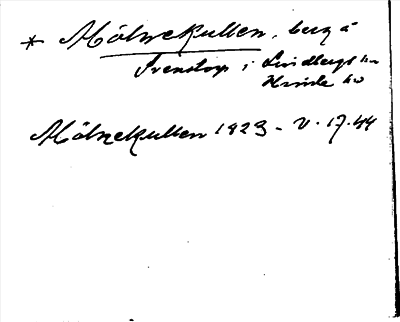 * Mölnekullen, berg å
Svenstorp i Lindbergs sn
Himle hd
Mölnekullen 1823 - V. 17.44